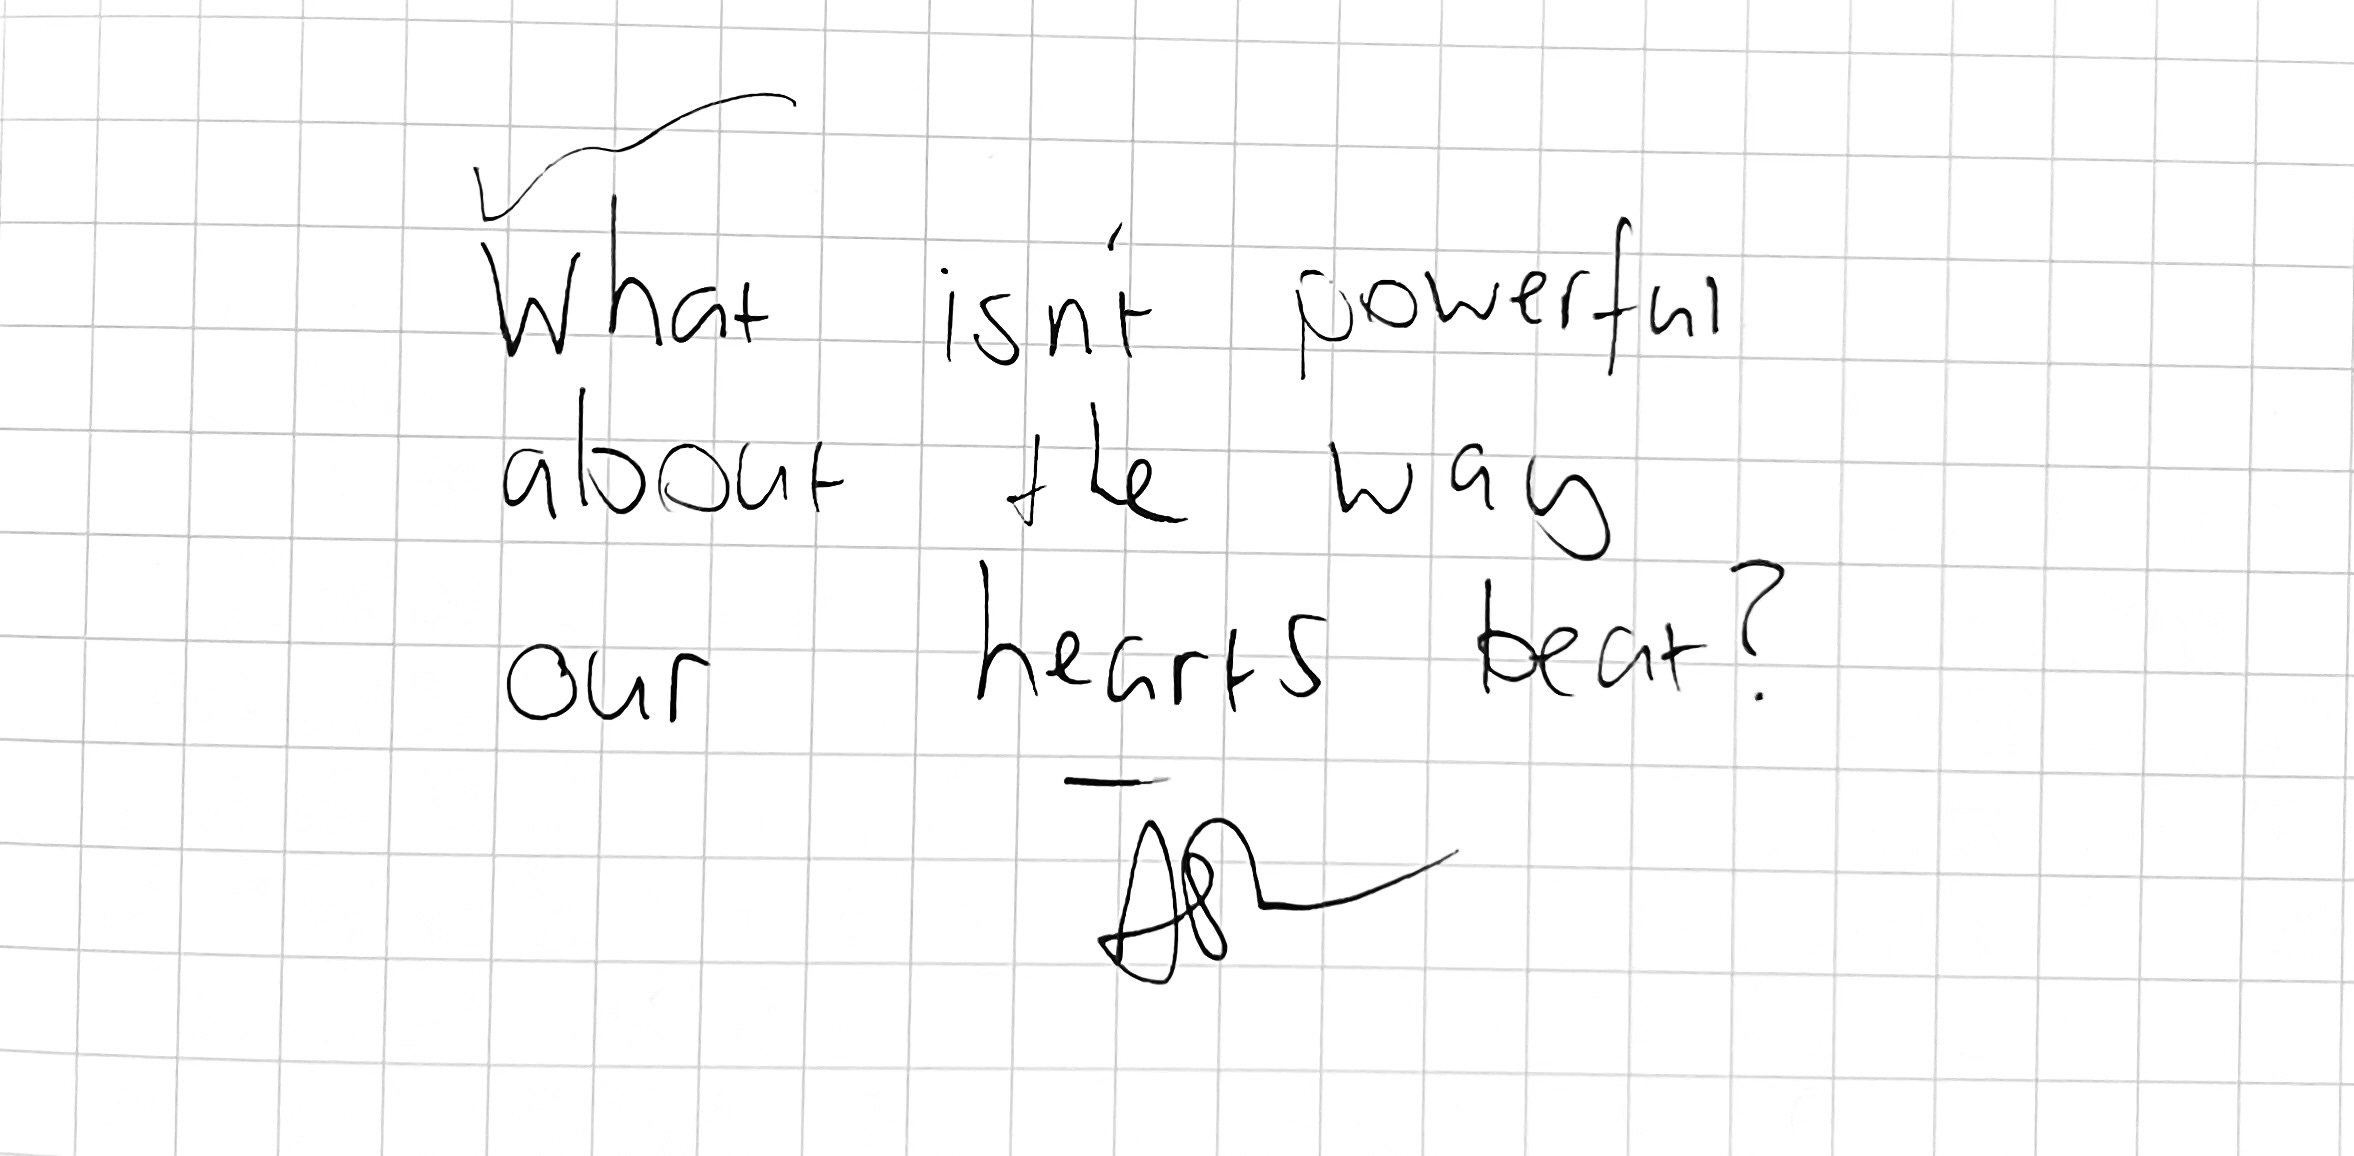 What isn't powerful
about the way
our hearts beat?